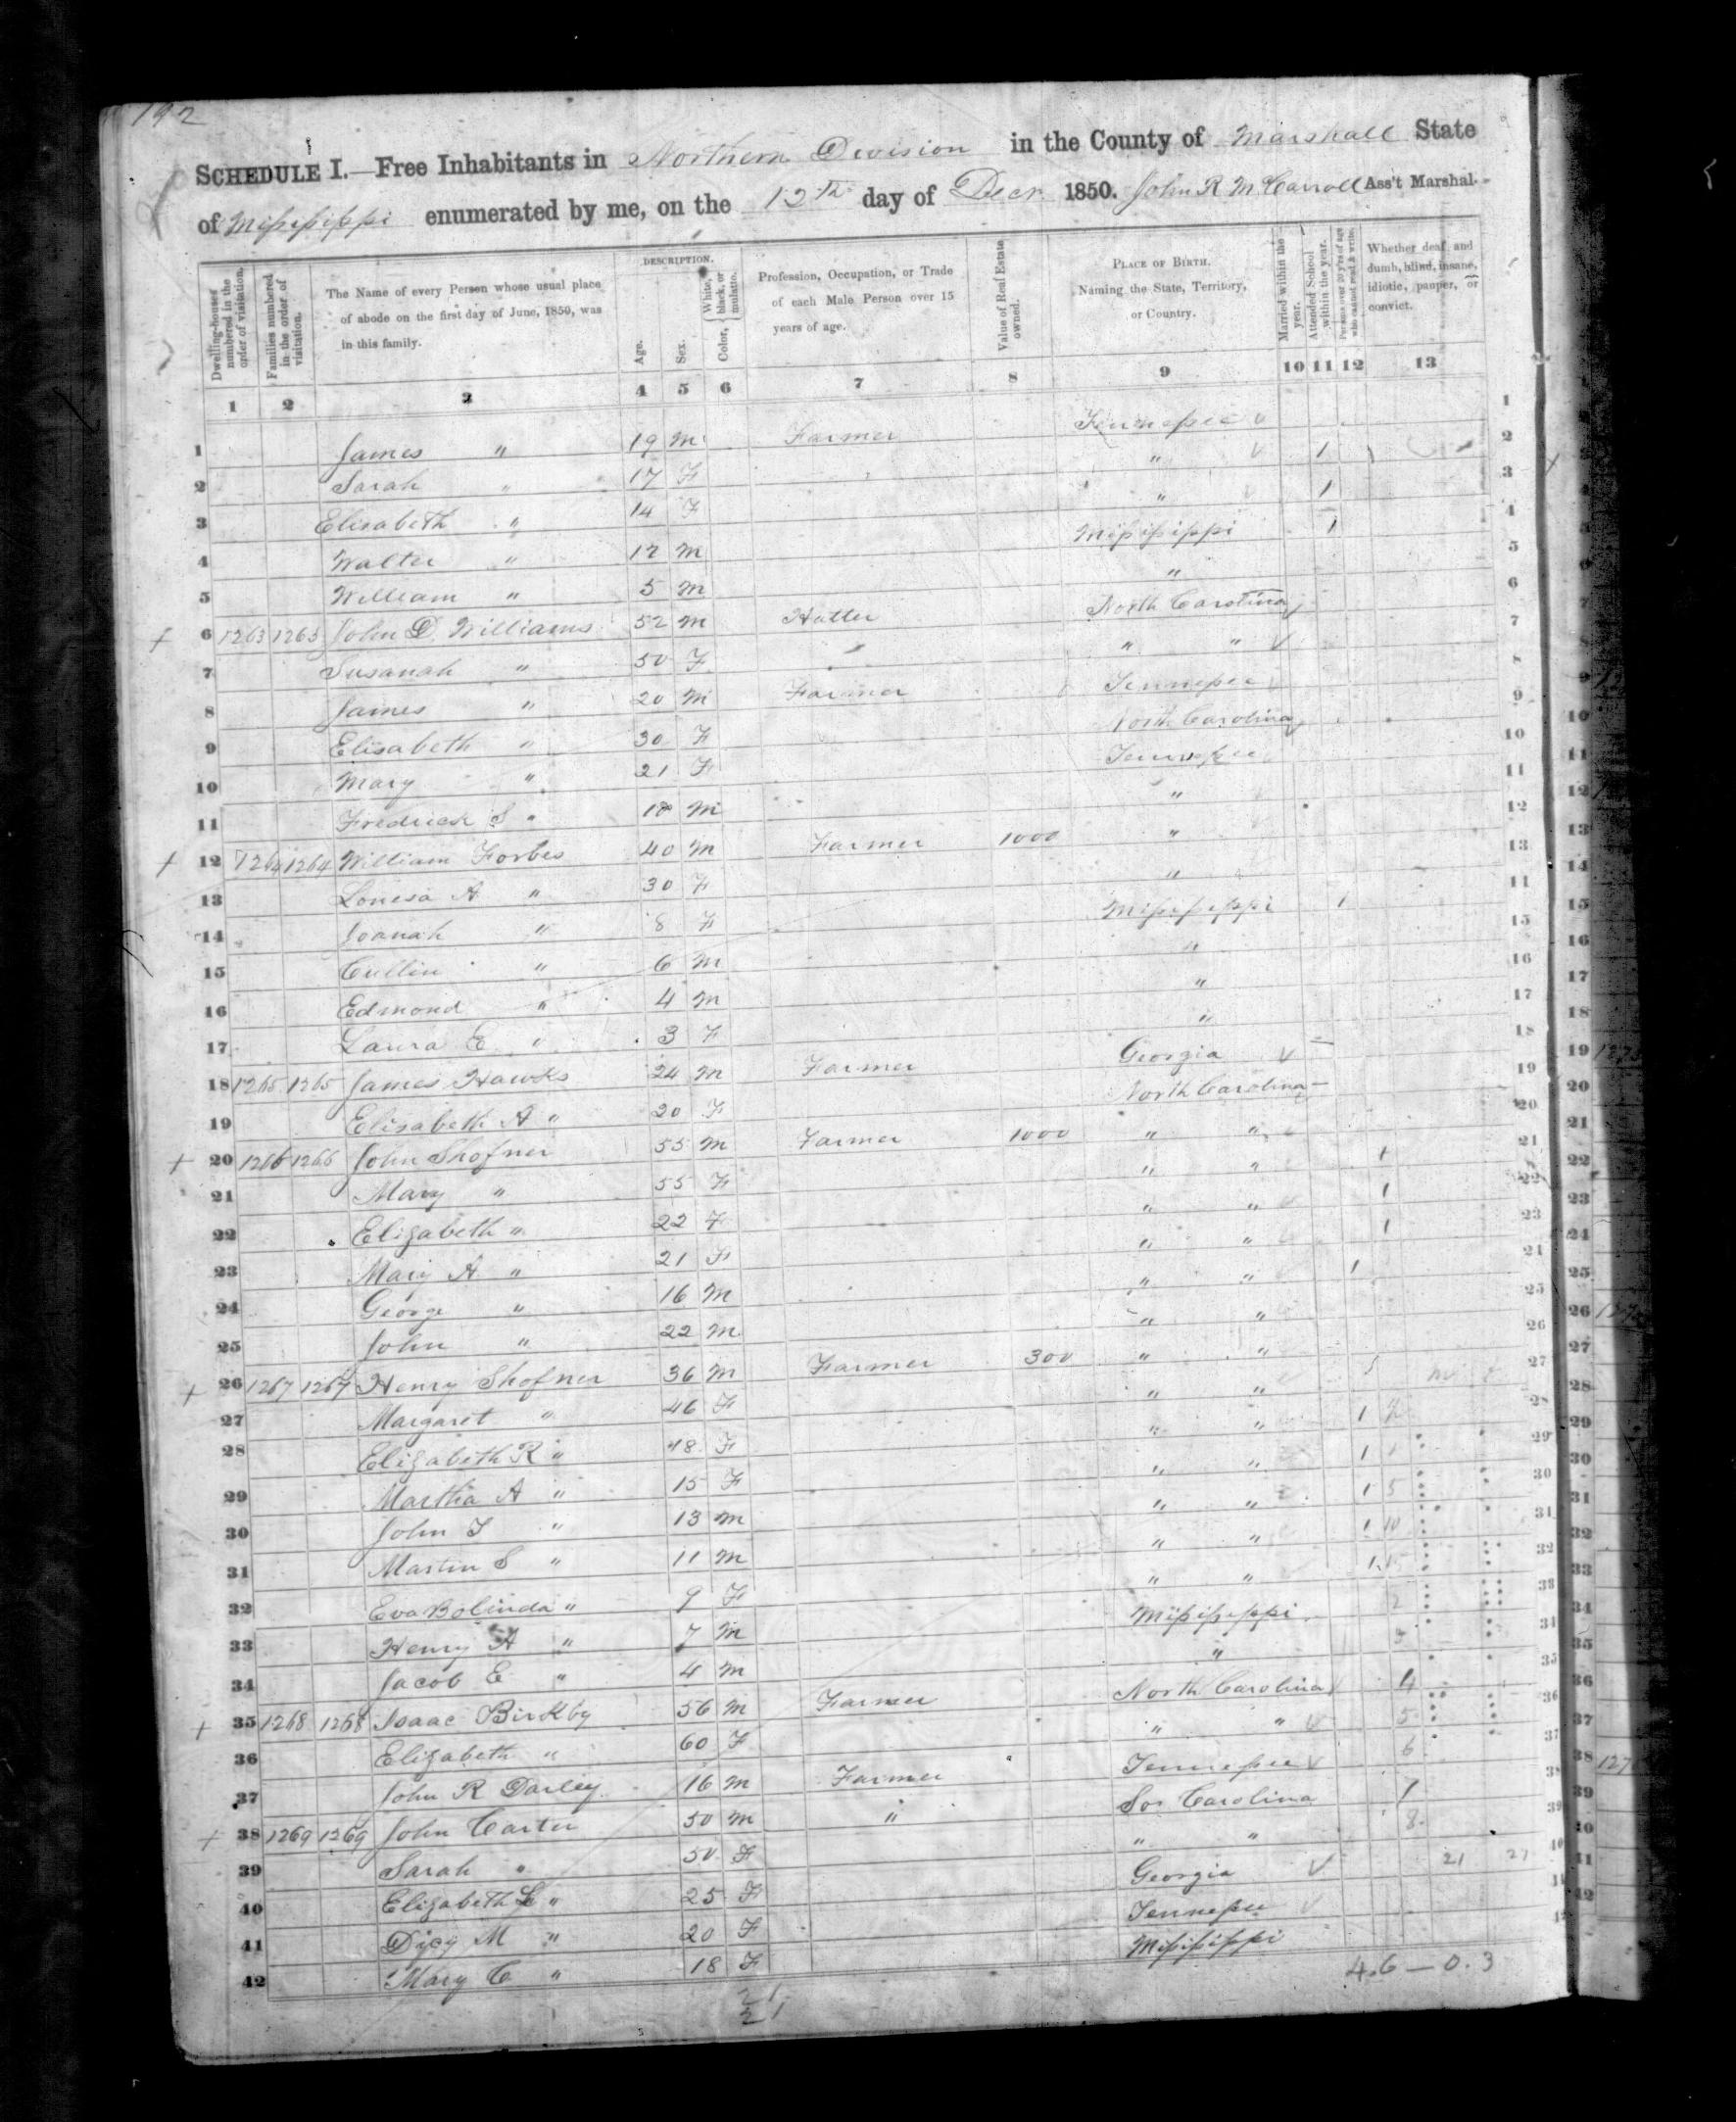 192
SCHEDULE I.—Free Inhabitants in Northern Division in the County of Marshall State
of Mississippi enumerated by me, on the 12th day of Decr 1850. John R McCarroll Ass't Marshal.
DESCRIPTION.
Dwelling-houses numbered in the order of visitation.
Families numbered in the order of visitation.
The Name of every Person whose usual place of abode on the first day of June, 1850, was in this family.
Age.
Sex.
Color, White, black, or mulatto.
Profession, Occupation, or Trade of each Male Person over 15 years of age.
Value of Real Estate owned.
PLACE OF BIRTH. Naming the State, Territory, or Country.
Married within the year.
Attended School within the year.
Persons over 20 y'rs of age who cannot read & write.
Whether deaf and dumb, blind, insane, idiotic, pauper, or convict.
1 2 3 4 5 6 7 8 9 10 11 12 13
1 James " 19 M Farmer Tennessee
2 Sarah " 17 F " 1
3 Elisabeth " 14 F " 1
4 Walter " 12 M Mississippi 1
5 William " 5 M "
6 1263 1263 John D. Williams 52 M Hatter North Carolina
7 Susanah " 50 F " "
8 James " 20 M Farmer Tennessee
9 Elisabeth " 30 F North Carolina
10 Mary " 21 F Tennessee
11 Fredrick S " 18 M "
12 1264 1264 William Forbes 40 M Farmer 1000 "
13 Louesa A " 30 F "
14 Joanah " 8 F Mississippi 1
15 Cullin " 6 M "
16 Edmond " 4 M "
17 Laura E " 3 F "
18 1265 1265 James Hawks 24 M Farmer Georgia
19 Elisabeth A " 20 F North Carolina
20 1266 1266 John Shofner 55 M Farmer 1000 " "
21 Mary " 55 F " " 1
22 Elizabeth " 22 F " " 1
23 Mary A " 21 F " " 1
24 George " 16 M " " 1
25 John " 22 M " "
26 1267 1267 Henry Shofner 36 M Farmer 300 " "
27 Margaret " 46 F " "
28 Elizabeth R " 18 F " " 1
29 Martha A " 15 F " " 1
30 John T " 13 M " " 1
31 Martin S " 11 M " " 1
32 Eva Bolinda " 9 F " " 1
33 Henry A " 7 M Mississippi
34 Jacob E " 4 M "
35 1268 1268 Isaac Birkby 56 M Farmer North Carolina
36 Elizabeth " 60 F " "
37 John R Darley 16 M Farmer Tennessee
38 1269 1269 John Carter 50 M " So Carolina
39 Sarah " 50 F " "
40 Elizabeth L " 25 F Georgia
41 Dicy M " 20 F Tennessee
42 Mary C " 18 F Mississippi
21 21
4.6 — 0.3
21
21